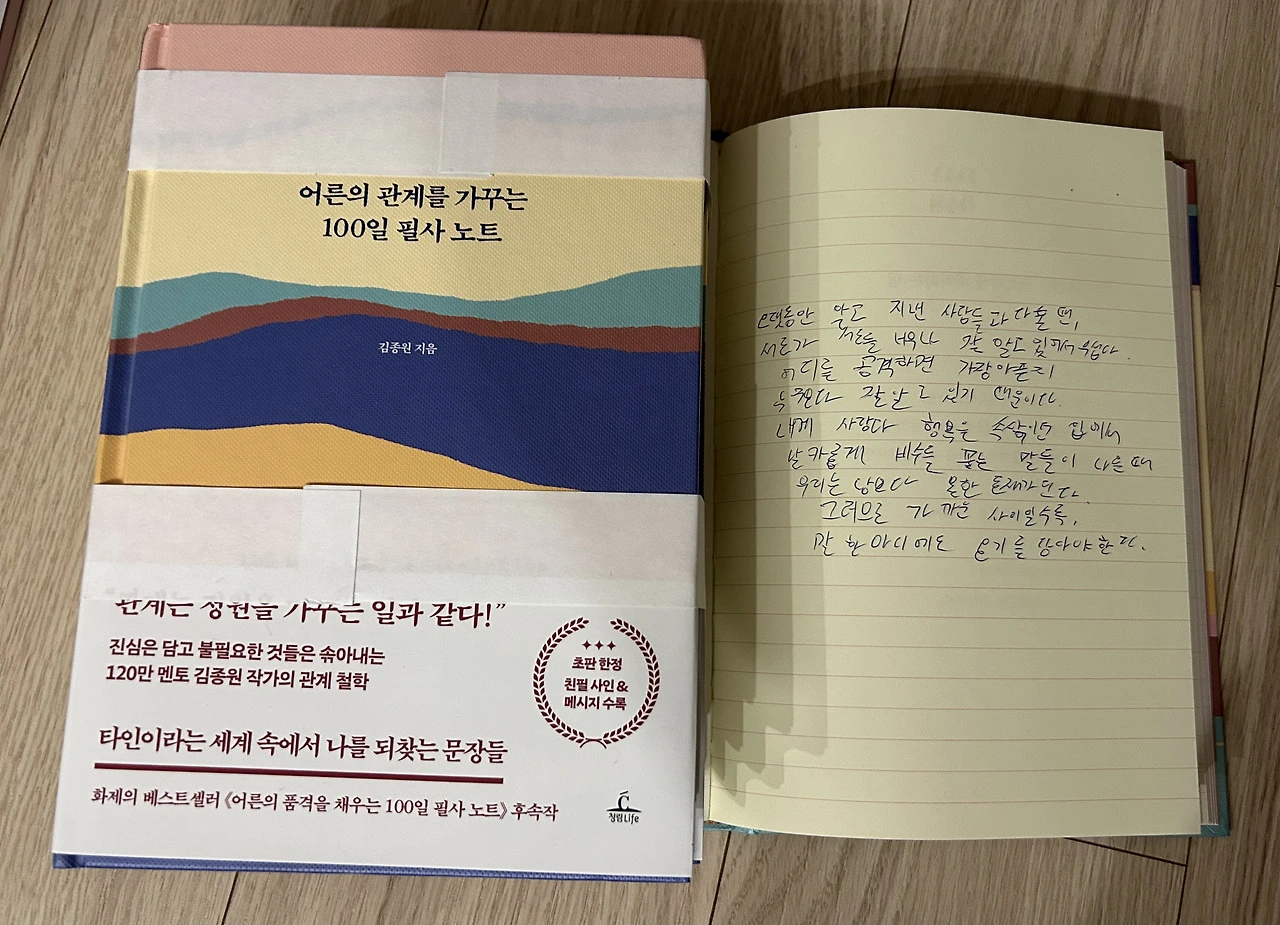 어른의 관계를 가꾸는
100일 필사 노트
김종원 지음
"관계는 정원을 가꾸는 일과 같다!"
진심은 담고 불필요한 것들은 솎아내는
120만 멘토 김종원 작가의 관계 철학
초판 한정
친필 사인 &
메시지 수록
타인이라는 세계 속에서 나를 되찾는 문장들
화제의 베스트셀러 《어른의 품격을 채우는 100일 필사 노트》 후속작
청림Life
오랫동안 알고 지낸 사람들과 다툴 때,
서로가 서로를 너무나 잘 알고 있어서 무섭다.
어디를 공격하면 가장 아픈지
누구보다 잘 알고 있기 때문이다.
내게 사랑과 행복을 속삭이던 입에서
날카롭게 비수를 품는 말들이 나올 때
우리는 남보다 못한 존재가 된다.
그러므로 가까운 사이일수록,
말 한마디에도 온기를 담아야 한다.